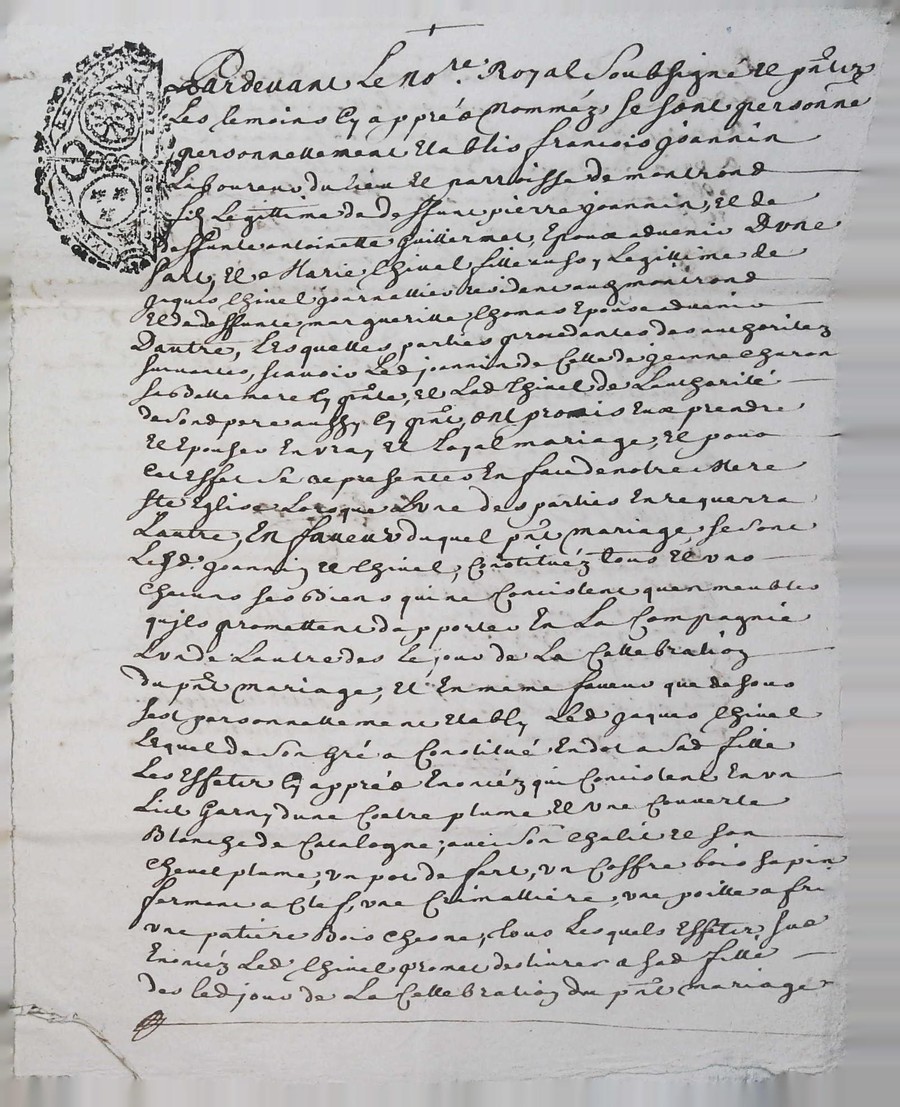 Pardevant Le No.re Royal Soubsigné Et pñtz
Les temoins Cy apprés Nomméz se sont personne
personnellement Etablis francois joannin
Laboureur du lieu Et parroisse de montrond
fils Legittime de deffunt pierre joannin, Et de
deffunte antoinette Guillermet, Epoux advenir Dvne
part, Et Marie Chivel fille aussy Legittime de
jaques Chivel journallier resident aud montrond
Et de deffunte margueritte thomas Epouse advenir
Dautre, Lesquelles parties procedantes des authoritez
survantes, scavoir Led joannin de Celle de jeanne charon
sa belle mere Cy pñte, Et Lad Chivel de Lauthorité
de sond pere aussy Cy pñt, ont promis Eux prendre
Et Epouser En vray Et Loyal mariage, Et pour
Cet Effet se representer En face de notre Mere
Ste Eglise Lorsque Lvne des parties En requerra
Lautre, En faveur duquel pñt mariage, se sont
Lesd. joannin Et Chivel, Constituéz tous Et vns
Chacuns ses biens qui ne Concistent quen meubles
quils promettent dapporter En La Compagnie
Lvn de Lautre des le jour de La Cellebration
du pñt mariage, Et En meme faveur que dessus
sest personnellement Etably Led jaques Chivel
Lequel de son Gré a Constitué En dot a sad fille
Les Effets Cy apprés Enoncéz qui Concistent En vn
Lict Garny dune Coetre plume Et vne Couverte
Blanche de Catalogne, avec son Chalit Et son
Chevet plume, vn pot de fert, vn Coffre bois sapin
fermant a Clef, vne Crimalliere, vne poille a fri
vne patiere Bois Chesne, tous Lesquels Effets sus
Enoncéz Led Chivel promet deslivrer a sad fille
des led jour de La Cellebration du pñt mariage